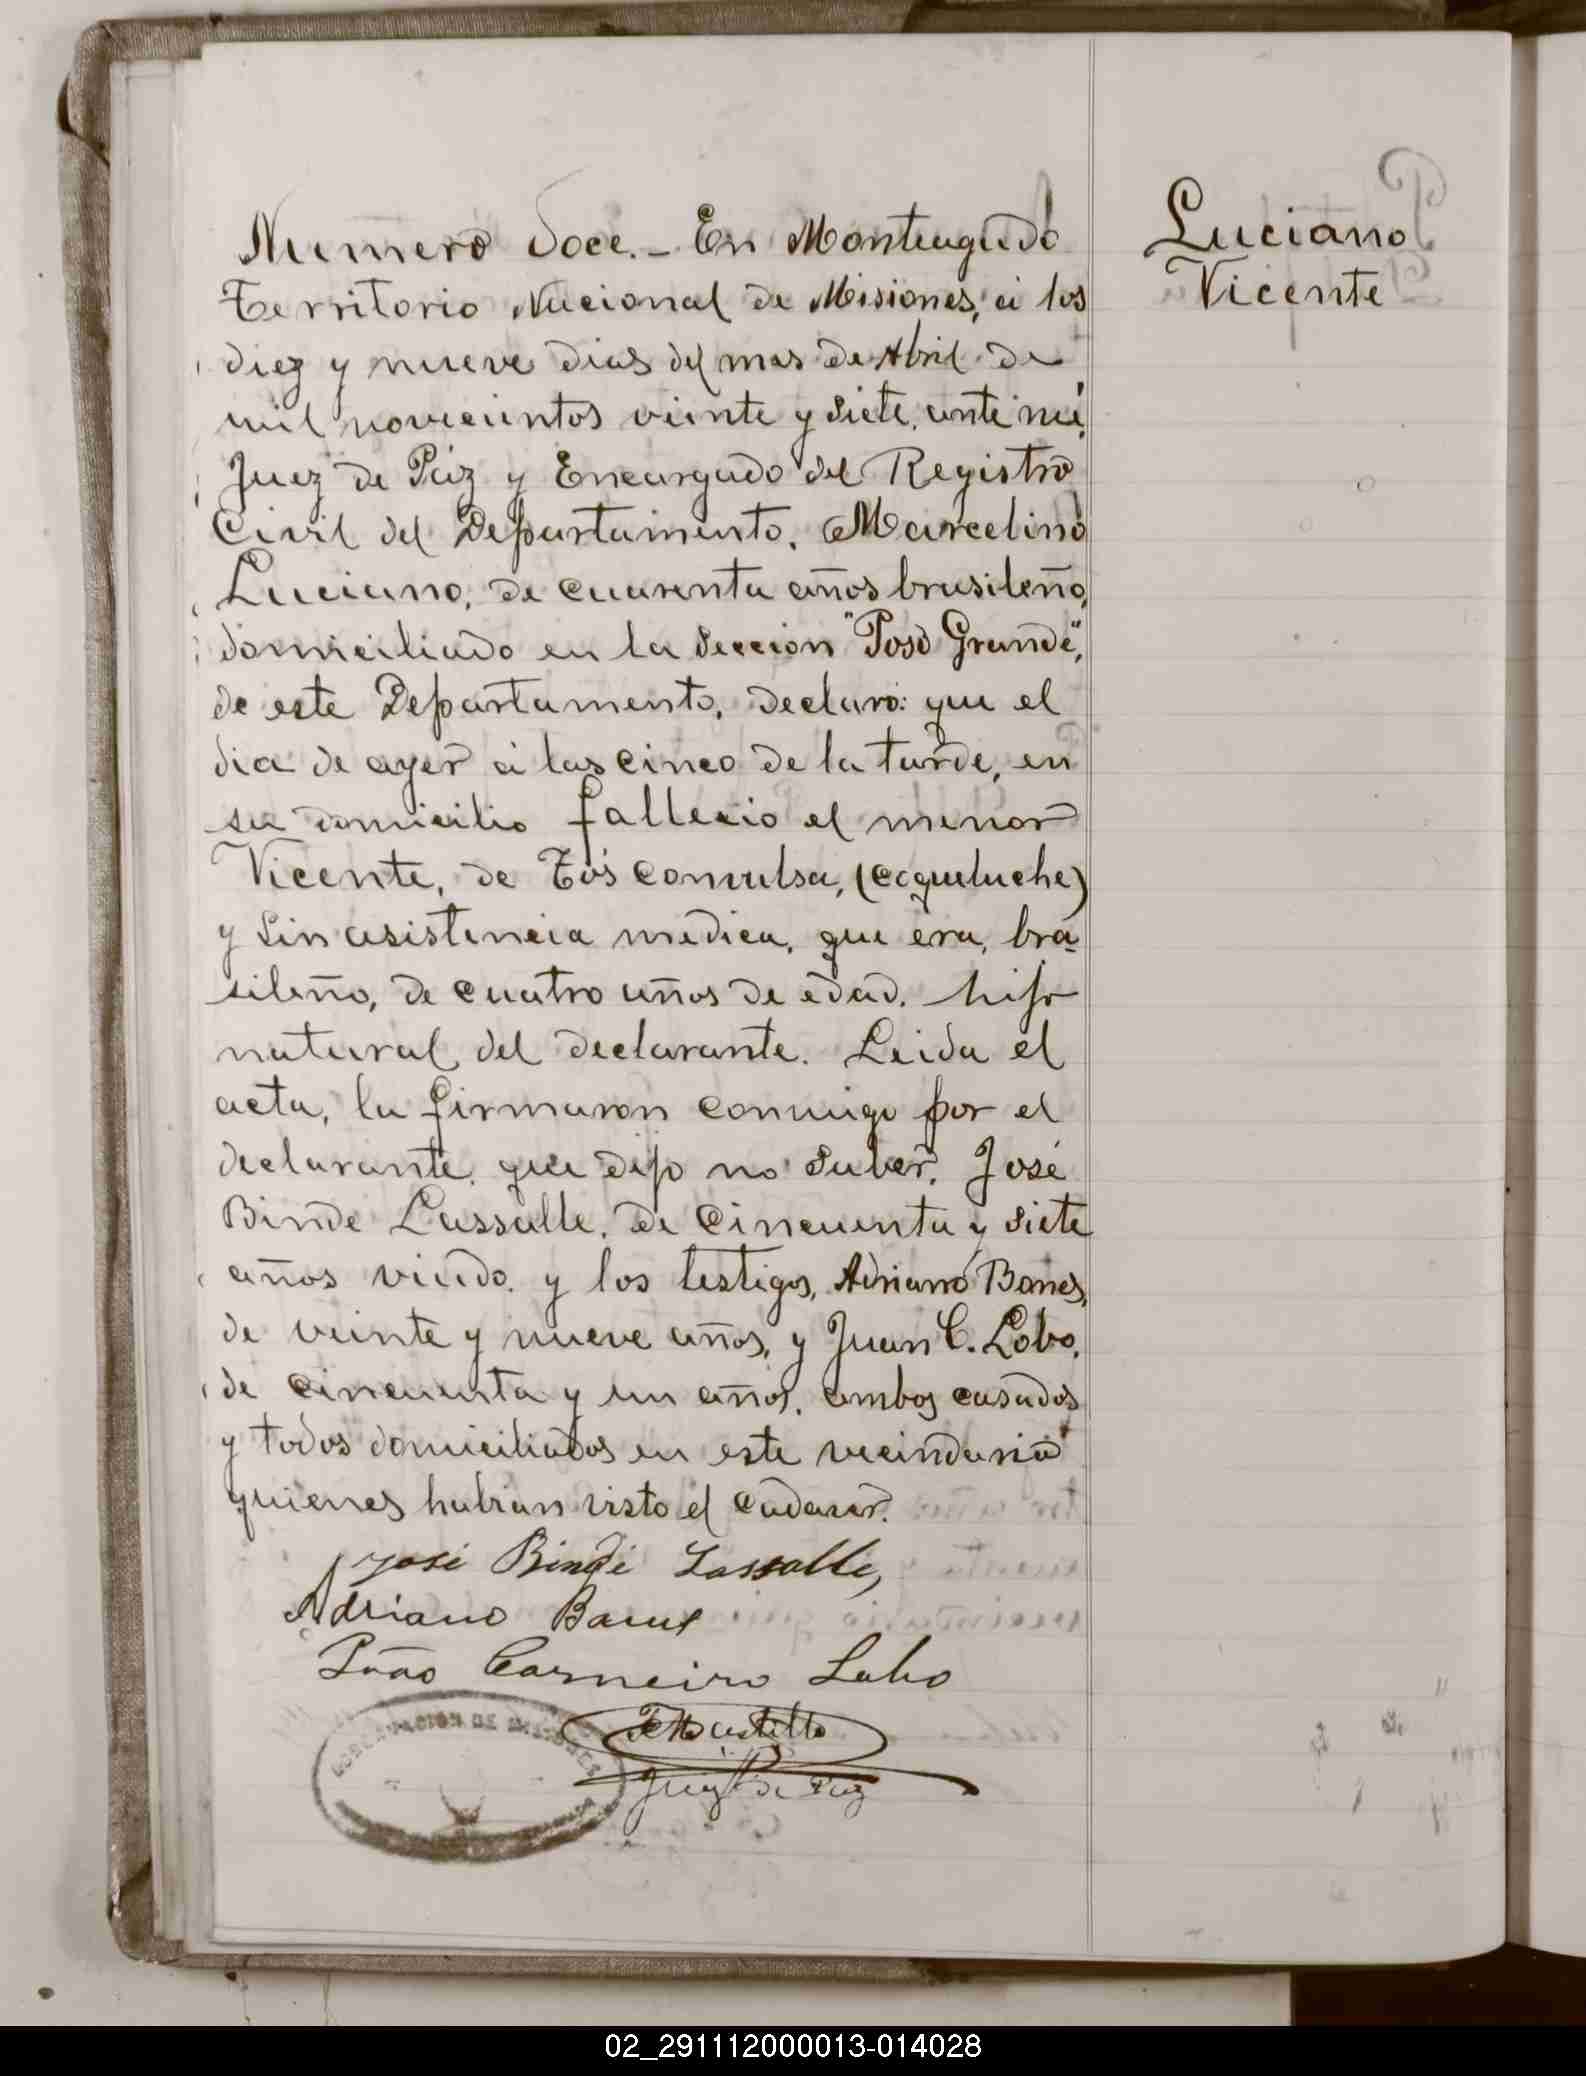 Numero doce. - En Monteagudo
Territorio Nacional de Misiones, á los
diez y nueve dias del mes de Abril de
mil novecientos veinte y siete, ante mi,
Juez de Paz y Encargado del Registro
Civil del Departamento, Marcelino
Luciano, de cuarenta años brasileño,
domiciliado en la Seccion "Poso Grande",
de este Departamento, declaró: que el
dia de ayer á las cinco de la tarde, en
su domicilio fallecio el menor
Vicente, de Tós convulsa, (coqueluche)
y sin asistencia medica, que era, bra-
sileño, de cuatro años de edad. hijo
natural del declarante. Leida el
acta, la firmaron conmigo por el
declarante, que dijo no saber, José
Binde Lassalle, de cincuenta y siete
años viudo y los testigos, Adriano Bones,
de veinte y nueve años, y Juan C. Lobo,
de cincuenta y un años, ambos casados
y todos domiciliados en este vecindario
quienes habian visto el cadaver.
José Bindé Lassalle,
Adriano
João Carneiro Lobo
Juez de Paz
Luciano
Vicente
02_291112000013-014028